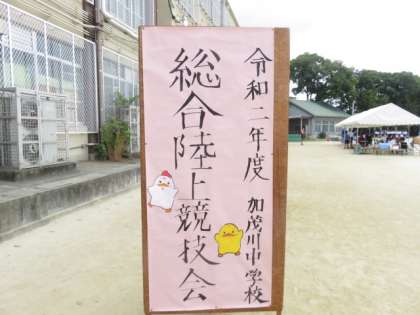 令和二年度 加茂川中学校
総合陸上競技会